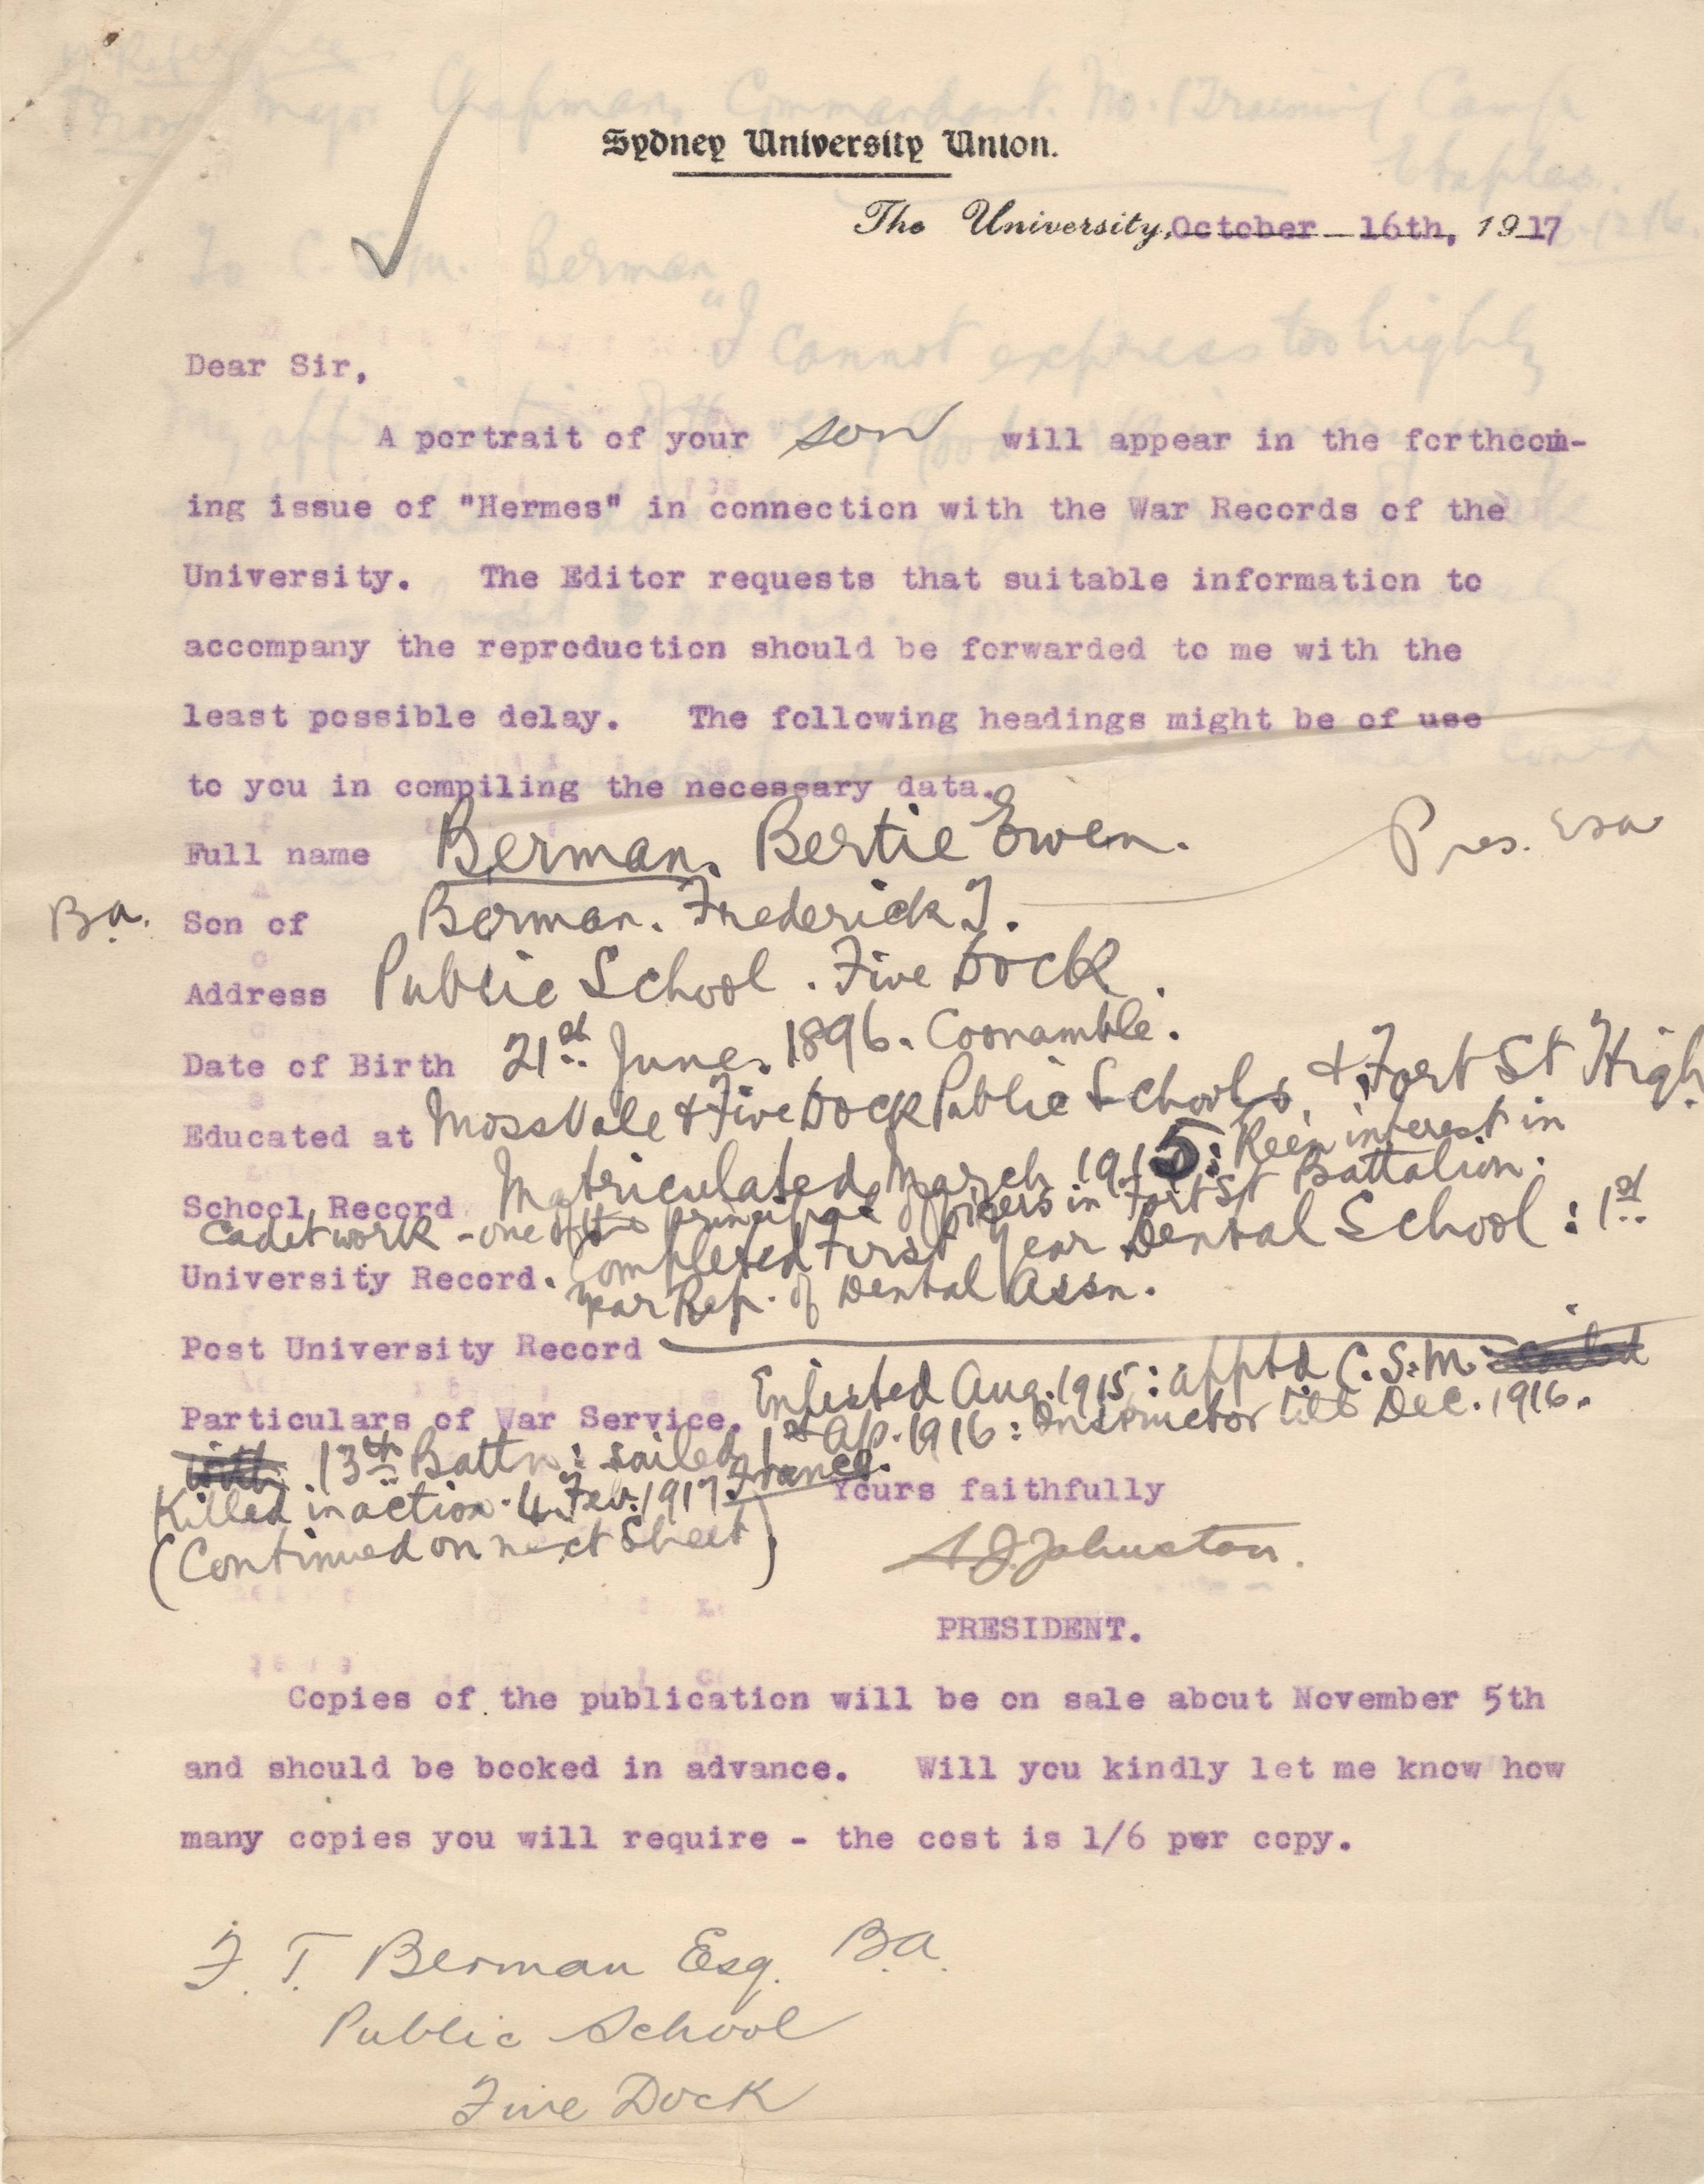 Sydney University Union.
The University, October 16th, 1917
Dear Sir,
A portrait of your son will appear in the forthcom-
ing issue of "Hermes" in connection with the War Records of the
University. The Editor requests that suitable information to
accompany the reproduction should be forwarded to me with the
least possible delay. The following headings might be of use
to you in compiling the necessary data.
Full name Berman. Bertie Ewen.
Pres. Esa
Ba. Son of Berman. Frederick T.
Address Public School. Five Dock.
Date of Birth 21st June. 1896. Coonamble.
Educated at Moss Vale & Five Dock Public Schools, & Fort St High
School Record Matriculated March 1915: Keen interest in
Cadet work - one of the principal officers in Fort St Battalion.
University Record. Completed First Year Dental School: 1st
year Rep. of Dental Assn.
Post University Record
Particulars of War Service. Enlisted Aug. 1915: apptd C.S.M. sailed
with 13th Battn: sailed 1st Ap. 1916: Instructor till Dec. 1916.
Killed in action. 4 Feb. 1917. France.
(Continued on next Sheet)
Yours faithfully
A.J. Johnston.
PRESIDENT.
Copies of the publication will be on sale about November 5th
and should be booked in advance. Will you kindly let me know how
many copies you will require - the cost is 1/6 per copy.
F. T. Berman Esq. B.A.
Public School
Five Dock